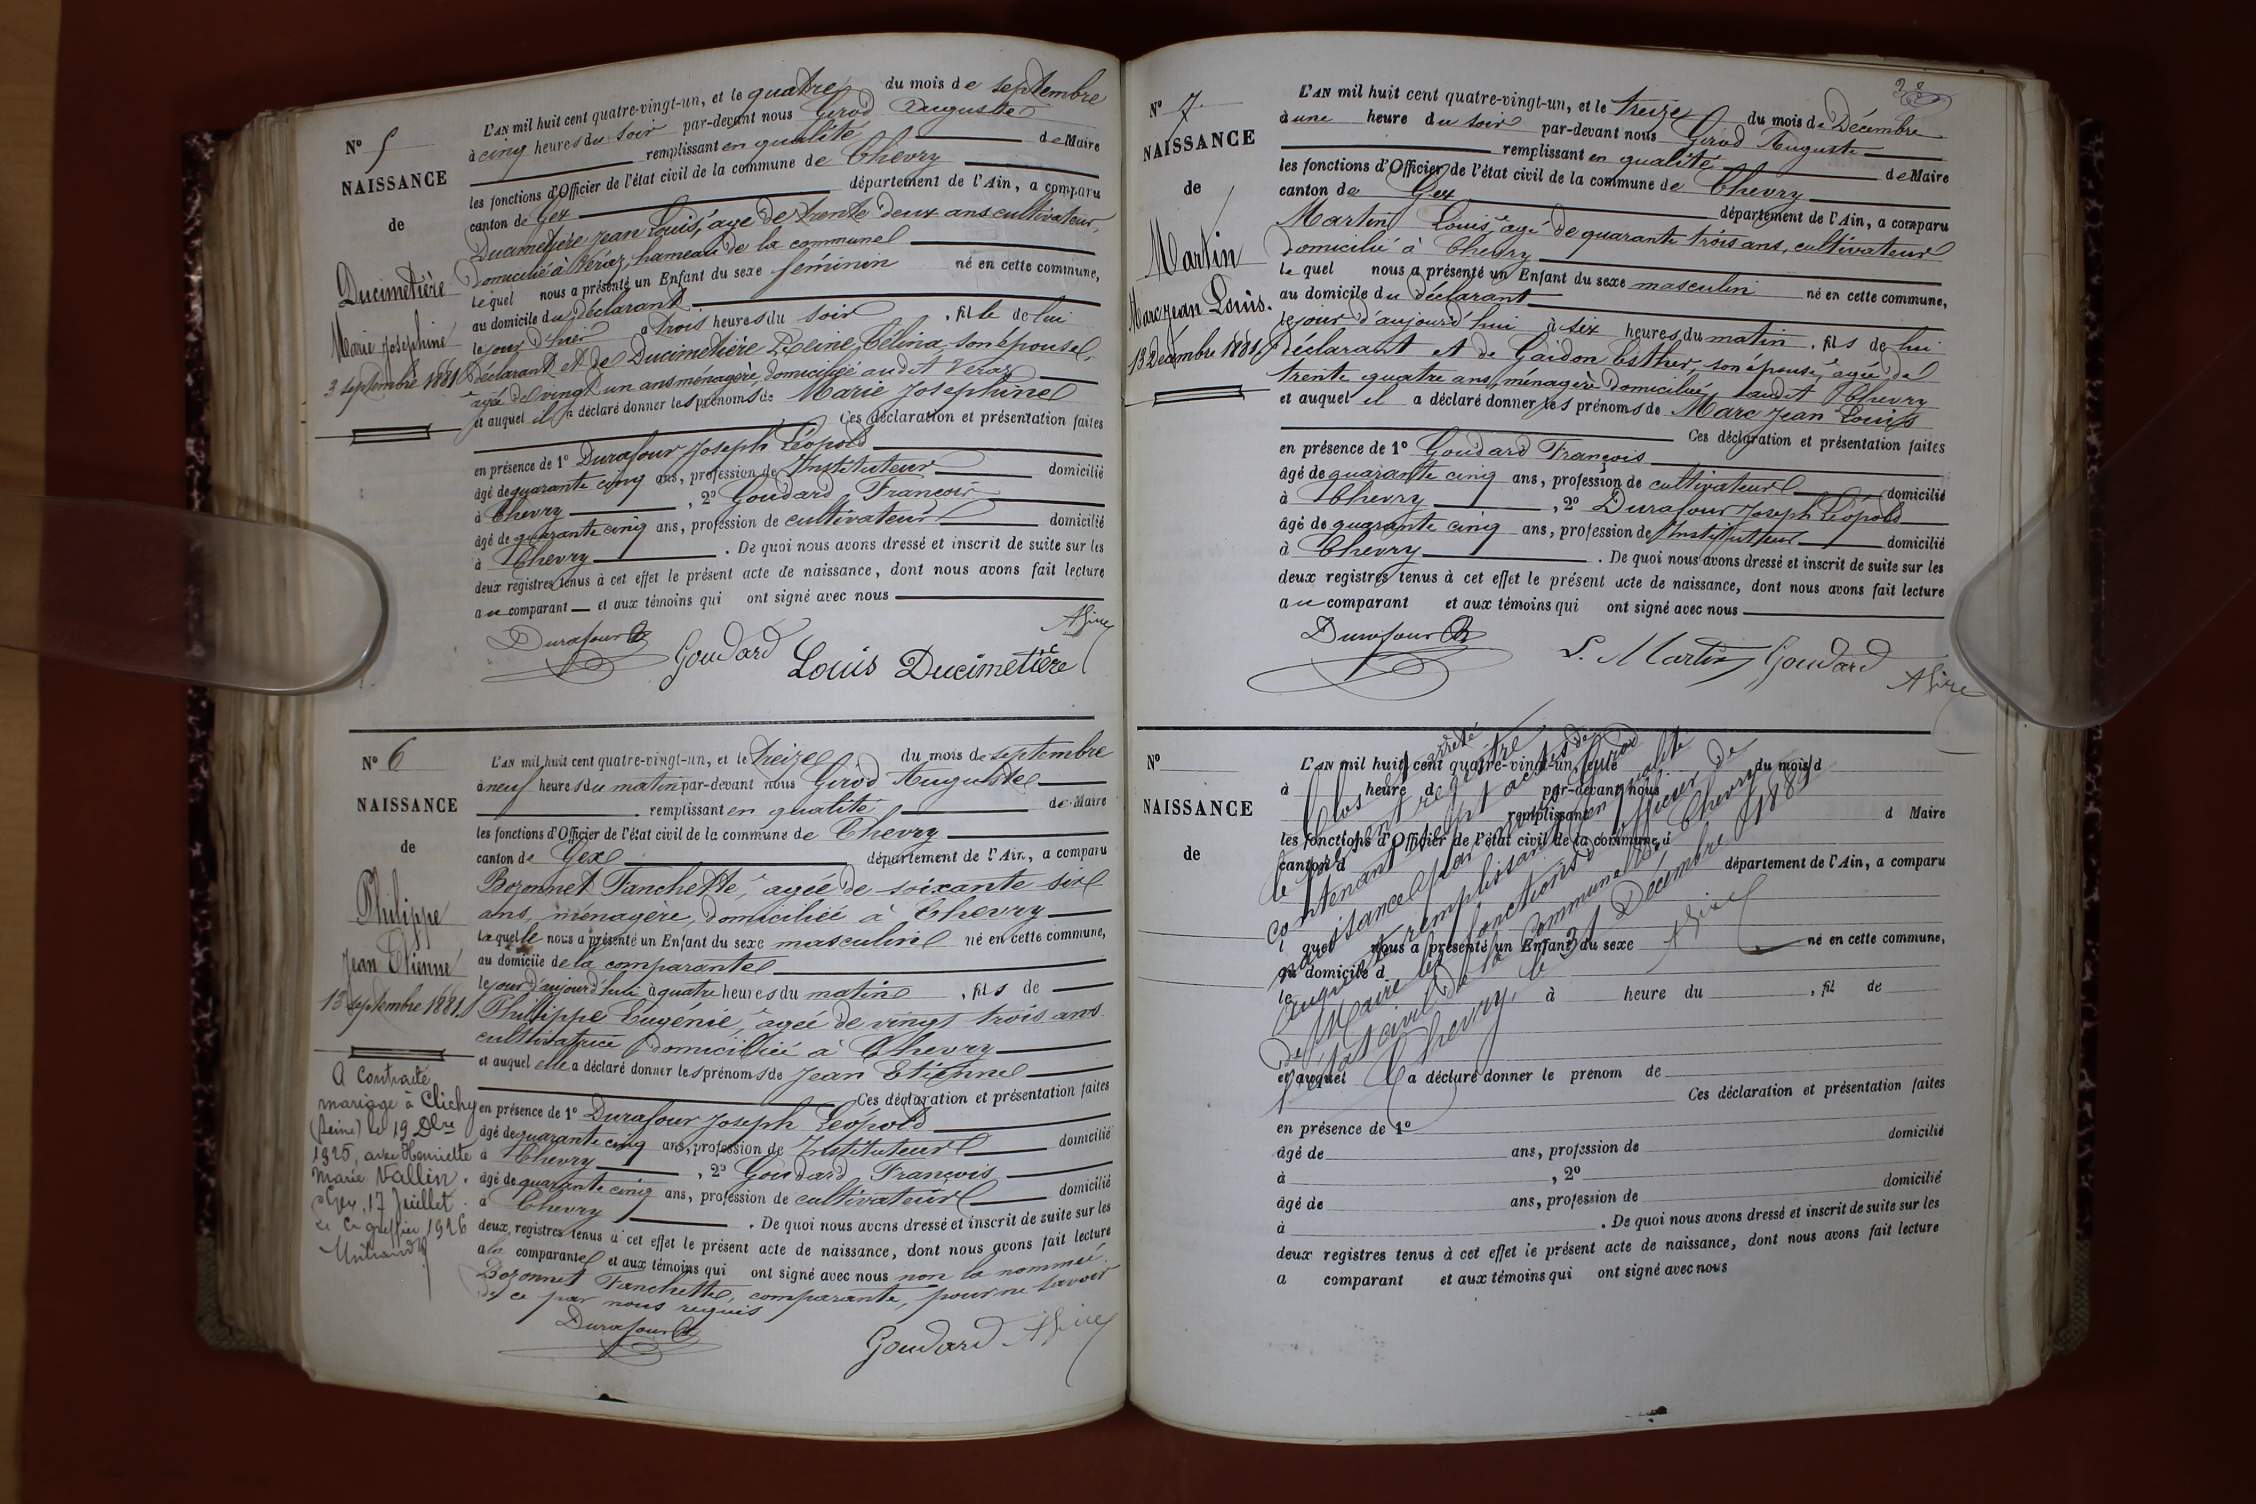 N° 5
NAISSANCE
de
Ducimetière
Marie Joséphine
3 septembre 1881
L'AN mil huit cent quatre-vingt-un, et le quatre du mois de septembre
à cinq heures du soir par-devant nous Girod Auguste
remplissant en qualité de Maire
les fonctions d'Officier de l'état civil de la commune de Chevry
canton de Gex département de l'Ain, a comparu
Ducimetière Jean Louis, agé de trente deux ans cultivateur,
domicilié à Véraz, hameau de la commune
lequel nous a présenté un Enfant du sexe féminin né en cette commune,
au domicile du déclarant
le jour d'hier à trois heures du soir , fille de lui
déclarant et de Ducimetière Reine Célina son épouse,
agée de vingt un ans ménagère, domiciliée audit Véraz
et auquel il a déclaré donner les prénoms de Marie Joséphine
Ces déclaration et présentation faites
en présence de 1° Durafour Joseph Léopold
âgé de quarante cinq ans, profession de Instituteur domicilié
à Chevry , 2° Goudard François
âgé de quarante cinq ans, profession de cultivateur domicilié
à Chevry . De quoi nous avons dressé et inscrit de suite sur les
deux registres tenus à cet effet le présent acte de naissance, dont nous avons fait lecture
au comparant et aux témoins qui ont signé avec nous
Durafour Goudard Louis Ducimetière
N° 6
NAISSANCE
de
Philippe
Jean Etienne
13 septembre 1881.
A contracté
mariage à Clichy
(Seine) le 19 Dbre
1925, avec Henriette
Marie Vallin.
Gex, 17 Juillet
Le Cs greffier 1926
L'AN mil huit cent quatre-vingt-un, et le treize du mois de septembre
à neuf heures du matin par-devant nous Girod Auguste
remplissant en qualité de Maire
les fonctions d'Officier de l'état civil de la commune de Chevry
canton de Gex département de l'Ain, a comparu
Bozonnet Fanchette, agée de soixante six
ans, ménagère, domiciliée à Chevry
laquelle nous a présenté un Enfant du sexe masculin né en cette commune,
au domicile de la comparante
le jour d'aujourd'hui à quatre heures du matin , fils de
Philippe Eugénie, agée de vingt trois ans
cultivatrice domiciliée à Chevry
et auquel elle a déclaré donner les prénoms de Jean Etienne
Ces déclaration et présentation faites
en présence de 1° Durafour Joseph Léopold
âgé de quarante cinq ans, profession de Instituteur domicilié
à Chevry , 2° Goudard François
âgé de quarante cinq ans, profession de cultivateur domicilié
à Chevry . De quoi nous avons dressé et inscrit de suite sur les
deux registres tenus à cet effet le présent acte de naissance, dont nous avons fait lecture
à la comparante et aux témoins qui ont signé avec nous non la nommée
Bozonnet Fanchette, comparante, pour ne savoir
de ce par nous requis
Durafour Goudard
38
N° 7
NAISSANCE
de
Martin
Marc Jean Louis.
13 Décembre 1881.
L'AN mil huit cent quatre-vingt-un, et le treize du mois de Décembre
à une heure du soir par-devant nous Girod Auguste
remplissant en qualité de Maire
les fonctions d'Officier de l'état civil de la commune de Chevry
canton de Gex département de l'Ain, a comparu
Martin Louis, agé de quarante trois ans, cultivateur
domicilié à Chevry
lequel nous a présenté un Enfant du sexe masculin né en cette commune,
au domicile du déclarant
le jour d'aujourd'hui à six heures du matin , fils de lui
déclarant et de Gaidon Esther, son épouse, agée de
trente quatre ans, ménagère domiciliée audit Chevry
et auquel il a déclaré donner les prénoms de Marc Jean Louis
Ces déclaration et présentation faites
en présence de 1° Goudard François
âgé de quarante cinq ans, profession de cultivateur domicilié
à Chevry , 2° Durafour Joseph Léopold
âgé de quarante cinq ans, profession de Instituteur domicilié
à Chevry . De quoi nous avons dressé et inscrit de suite sur les
deux registres tenus à cet effet le présent acte de naissance, dont nous avons fait lecture
au comparant et aux témoins qui ont signé avec nous
Durafour L. Martin Goudard
N°
NAISSANCE
de
L'AN mil huit cent quatre-vingt-un, et le du mois d
à heure d par-devant nous
remplissant d Maire
les fonctions d'Officier de l'état civil de la commune d
canton d département de l'Ain, a comparu
l quel nous a présenté un Enfant du sexe né en cette commune,
au domicile d
le à heure du , fil de
et auquel a déclaré donner le prénom de
Ces déclaration et présentation faites
en présence de 1°
âgé de ans, profession de domicilié
à , 2°
âgé de ans, profession de domicilié
à . De quoi nous avons dressé et inscrit de suite sur les
deux registres tenus à cet effet le présent acte de naissance, dont nous avons fait lecture
a comparant et aux témoins qui ont signé avec nous
Clos et arrêté
le présent registre
contenant sept actes de
naissance par nous Girod
Auguste remplissant en qualité
de Maire les fonctions d'officier de
l'état civil de la commune de Chevry
Chevry, le 31 Décembre 1881